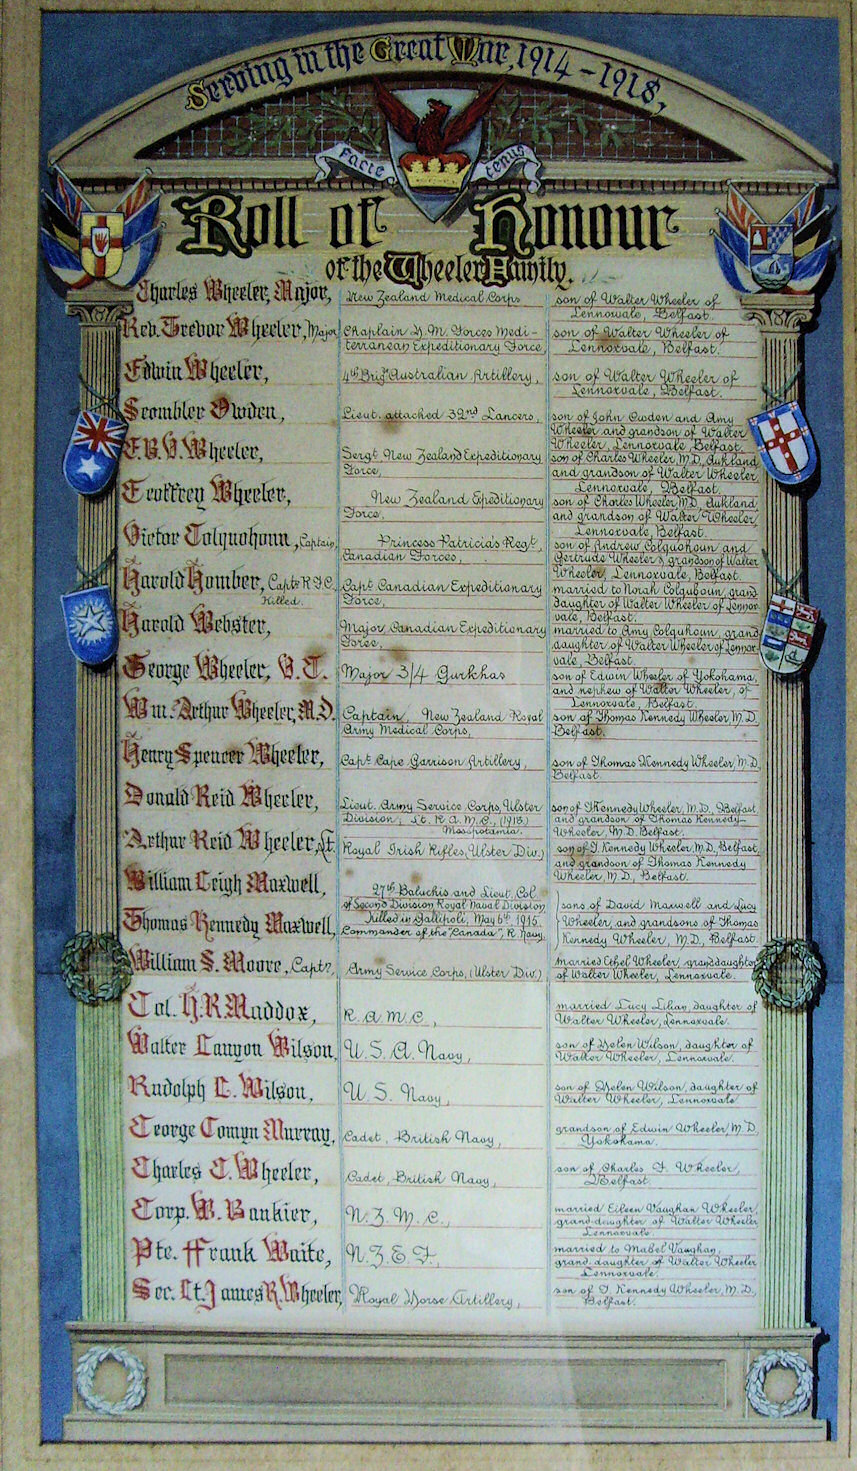 Serving in the Great War, 1914-1918,
Facie tenus
Roll of Honour
of the Wheeler Family.
Charles Wheeler, Major, New Zealand Medical Corps son of Walter Wheeler of
Lennoxvale, Belfast.
Rev. Trevor Wheeler, Major Chaplain H. M. Forces Medi- son of Walter Wheeler of
terranean Expeditionary Force, Lennoxvale, Belfast.
Edwin Wheeler, 4th Brig. Australian Artillery, son of Walter Wheeler of
Lennoxvale, Belfast.
Scombler Owden, Lieut. attached 32nd Lancers, son of John Owden and Amy
Wheeler and grandson of Walter
Wheeler, Lennoxvale, Belfast.
Wheeler, Sergt. New Zealand Expeditionary son of Charles Wheeler, M.D. Aukland
Force, and grandson of Walter Wheeler
Lennoxvale, Belfast.
Geoffrey Wheeler, New Zealand Expeditionary son of Charles Wheeler, M.D. Aukland
Force, and grandson of Walter Wheeler,
Lennoxvale, Belfast.
Victor Colquohoun, Captain, Princess Patricia's Regt., son of Andrew Colquohoun and
Canadian Forces, Gertrude Wheeler & grandson of Walter
Wheeler, Lennoxvale, Belfast.
Harold Homber, Capt. R.F.C. Capt. Canadian Expeditionary married to Norah Colquhoun, grand
Killed. Force, daughter of Walter Wheeler of Lennox-
vale, Belfast.
Harold Webster, Major Canadian Expeditionary married to Amy Colquhoun, grand
Force, daughter of Walter Wheeler of Lennox-
vale, Belfast.
George Wheeler, V.C. Major 3/4 Gurkhas son of Edwin Wheeler of Yokohama,
and nephew of Walter Wheeler, of
Lennoxvale, Belfast.
Wm. Arthur Wheeler, M.D. Captain, New Zealand Royal son of Thomas Kennedy Wheeler, M.D.
Army Medical Corps, Belfast.
Henry Spencer Wheeler, Capt. Cape Garrison Artillery, son of Thomas Kennedy Wheeler, M.D.
Belfast.
Donald Reid Wheeler, Lieut. Army Service Corps, Ulster son of T. Kennedy Wheeler, M.D., Belfast
Division; Lt. R.A.M.C., (1918) and grandson of Thomas Kennedy
Mesopotamia. Wheeler, M.D. Belfast.
Arthur Reid Wheeler, Lt. Royal Irish Rifles, (Ulster Div.) son of T. Kennedy Wheeler, M.D., Belfast,
and grandson of Thomas Kennedy
Wheeler, M.D., Belfast.
William Leigh Maxwell, 27th Baluchis and Lieut. Col.
of Second Division Royal Naval Division sons of David Maxwell and Lucy
Thomas Kennedy Maxwell, Killed in Gallipoli, May 6th 1915. Wheeler, and grandsons of Thomas
Commander of the "Canada", R. Navy. Kennedy Wheeler, M.D., Belfast.
William S. Moore, Captn, Army Service Corps, (Ulster Div.) married Ethel Wheeler, granddaughter
of Walter Wheeler, Lennoxvale.
Col. H.R. Maddox, R.A.M.C., married Lucy Lilian, daughter of
Walter Wheeler, Lennoxvale.
Walter Canyon Wilson, U.S.A. Navy, son of Helen Wilson, daughter of
Walter Wheeler, Lennoxvale.
Rudolph C. Wilson, U.S. Navy, son of Helen Wilson, daughter of
Walter Wheeler, Lennoxvale
George Comyn Murray, Cadet, British Navy, grandson of Edwin Wheeler, M.D.
Yokohama.
Charles C. Wheeler, Cadet, British Navy, son of Charles F. Wheeler,
Belfast.
Corp. W. Bankier, N.Z.M.C., married Eileen Vaughan Wheeler,
grand-daughter of Walter Wheeler
Lennoxvale.
Pte. Frank Waite, N.Z.E.F., married to Mabel Vaughan,
grand daughter of Walter Wheeler
Lennoxvale,
Sec. Lt. James R. Wheeler, Royal Horse Artillery, son of T. Kennedy Wheeler, M.D.,
Belfast.